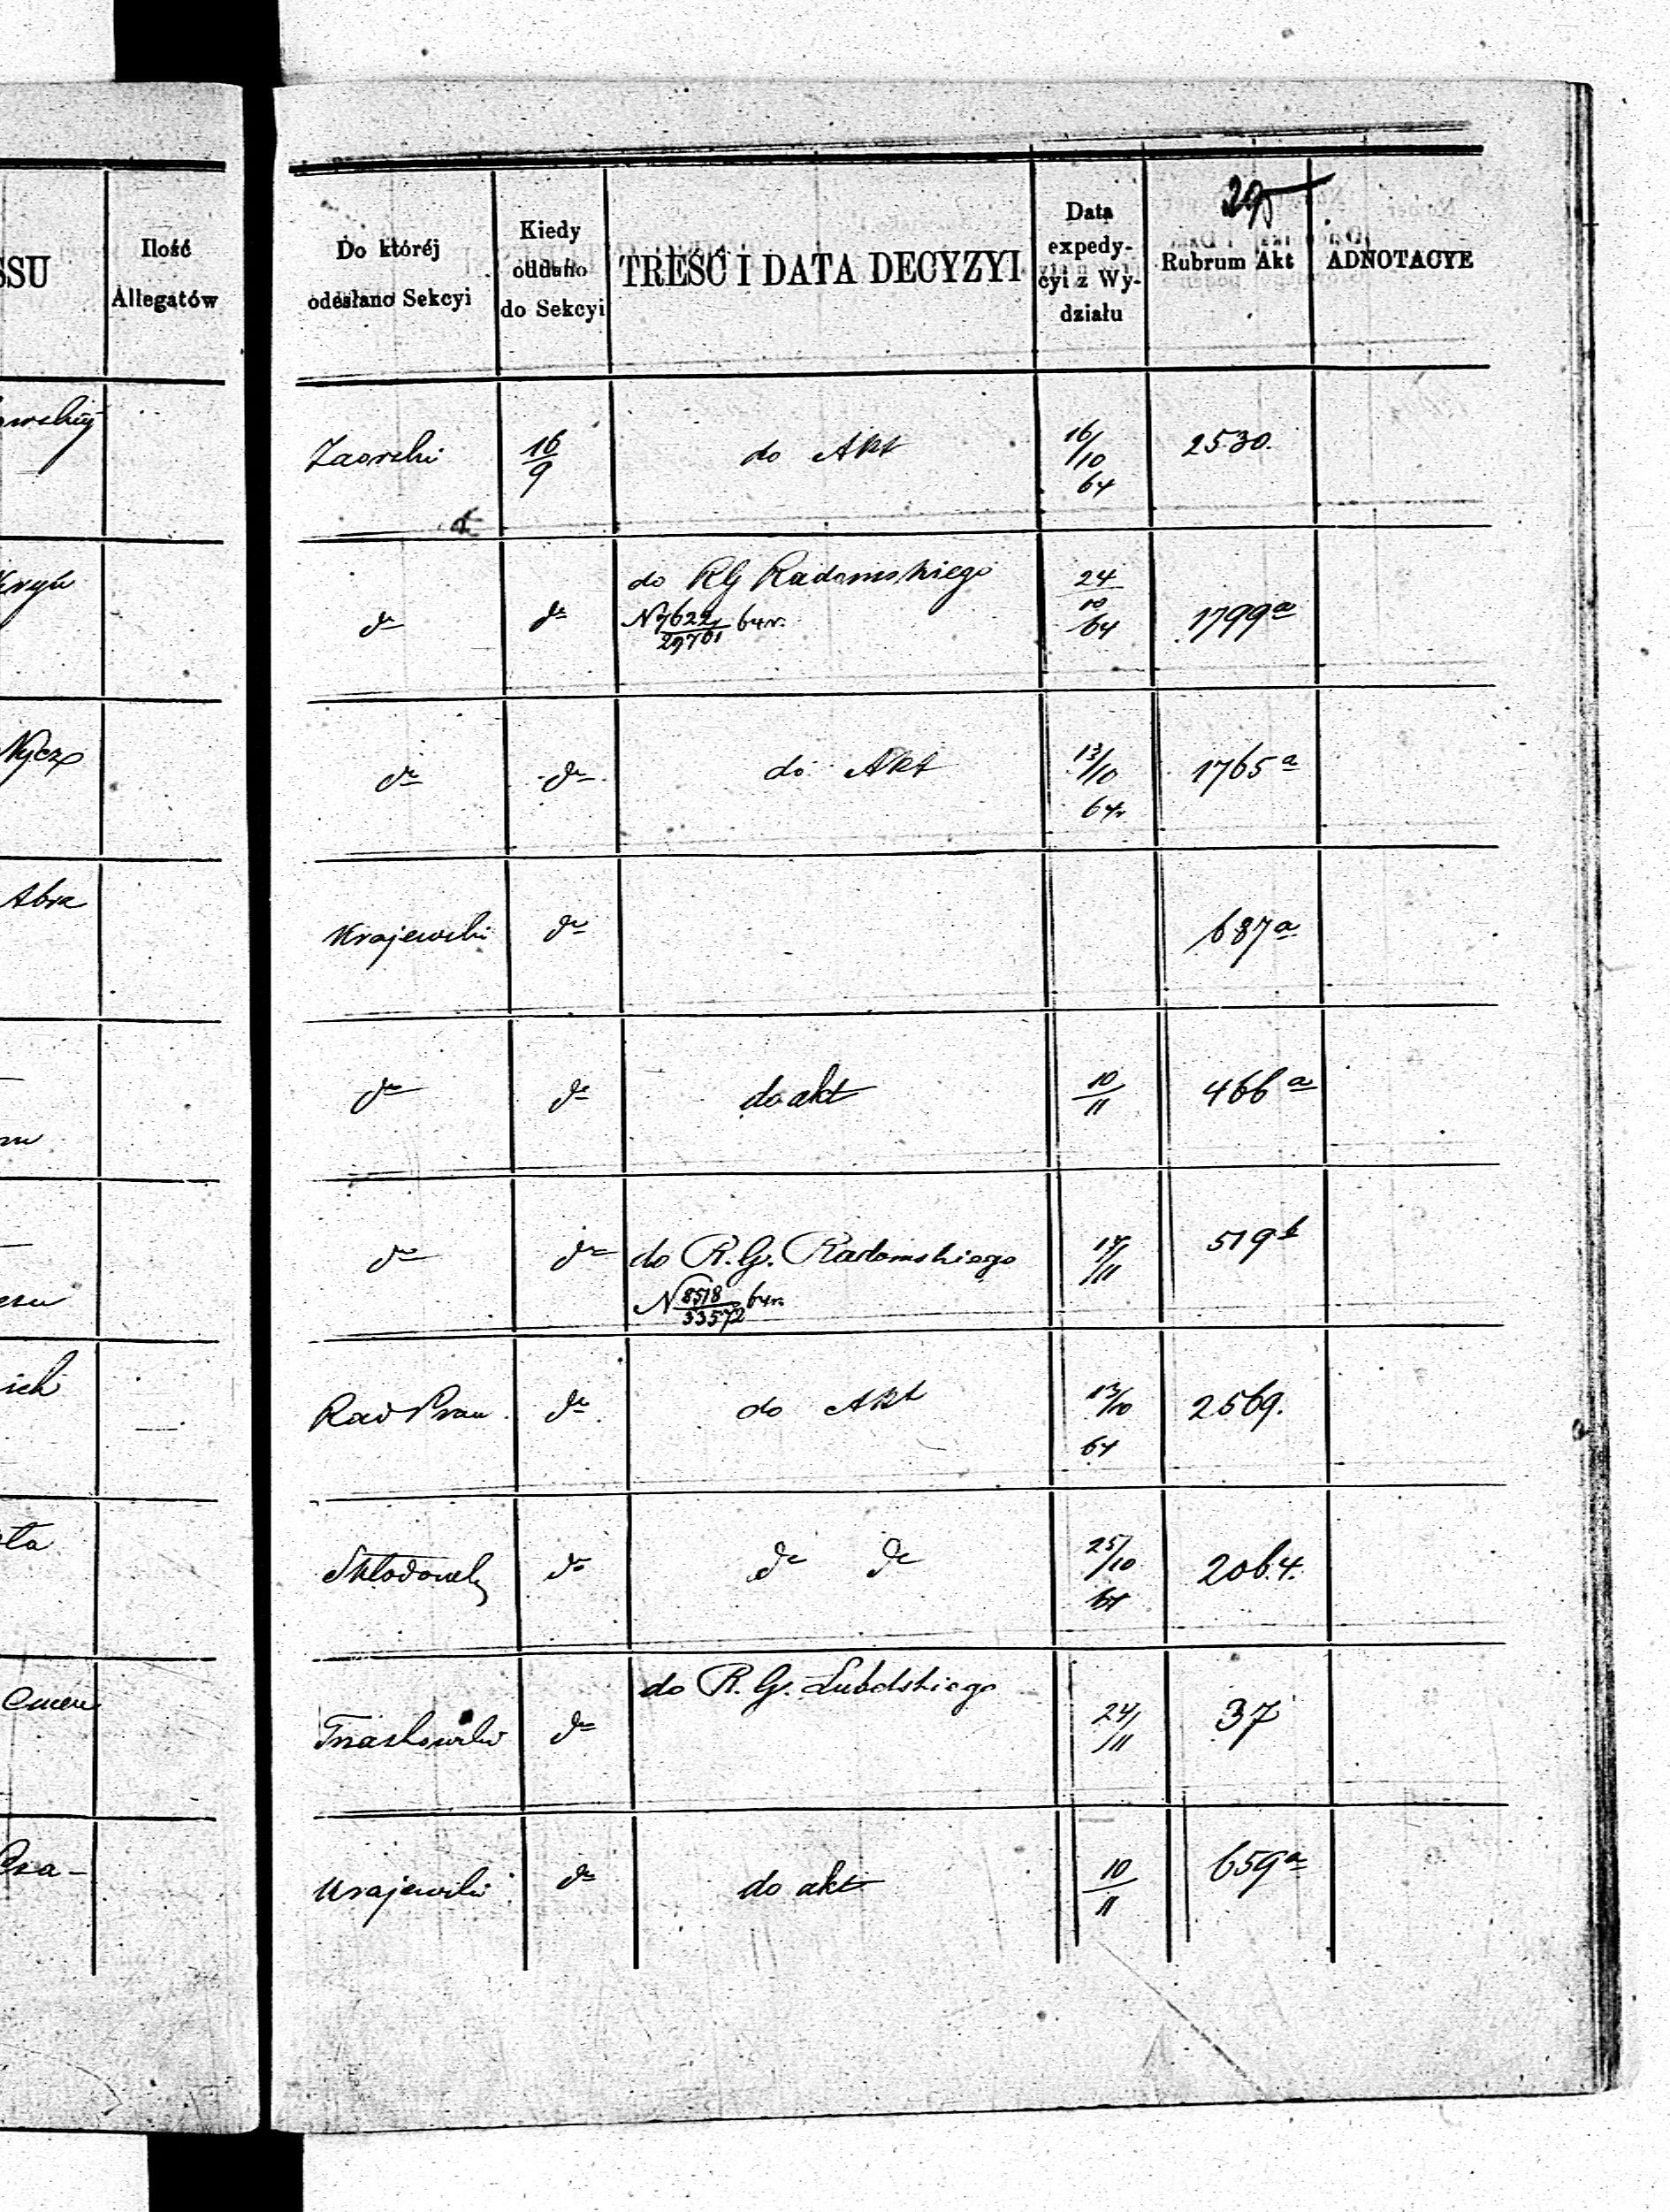 SSU
Ilość
Allegatów
Do któréj
odesłano Sekcyi
Kiedy
oddano
do Sekcyi
TREŚĆ I DATA DECYZYI
Data
expedy-
cyi z Wy-
działu
Rubrum Akt
ADNOTACYE
295
Zaorski
16/9
do Akt
16/10
64
2530.
do
do
do RG Radomskiego
N 7622/29701 64r.
24/10
64
1799a
Nycz
do
do
do Akt
13/10
64r
1765a
Abra
Krajewski
do
687a
do
do
do akt
10/11
466a
do
do
do R. G. Radomskiego
N 8518/33572 64r.
17/11
519b
ich
Rad Praw
do
do Akt
13/10
64
2569.
ta
Skłodowsk
do
do do
25/10
64
2064.
Trzaskowski
do
do R. G. Lubelskiego
24/11
37
Krajewski
do
do akt
10/11
659a